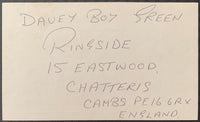 DAVEY BOY GREEN
RINGSIDE
15 EASTWOOD,
CHATTERIS
CAMBS PE16 6RX
ENGLAND.